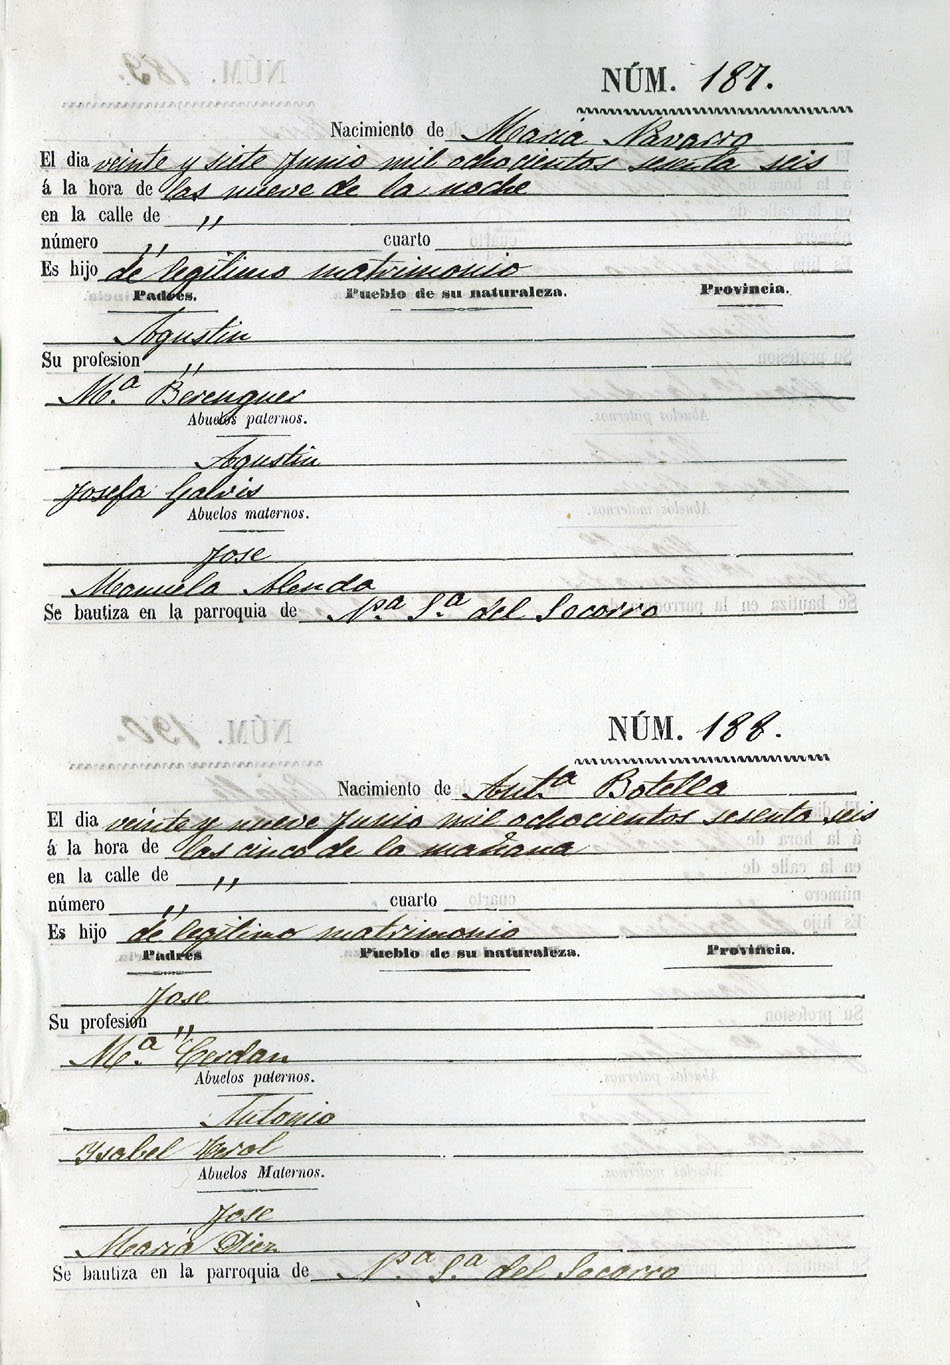 NÚM. 187.
Nacimiento de Maria Navarro
El dia veinte y siete Junio mil ochocientos sesenta seis
á la hora de las nueve de la noche
en la calle de "
número " cuarto
Es hijo de legitimo matrimonio
Padres. Pueblo de su naturaleza. Provincia.
Agustin
Su profesion "
Mª Berenguer
Abuelos paternos.
Agustin
Josefa Galvis
Abuelos maternos.
Jose
Manuela Alenda
Se bautiza en la parroquia de Nª Sª del Socorro
NÚM. 188.
Nacimiento de Antª Botella
El dia veinte y nueve Junio mil ochocientos sesenta seis
á la hora de las cinco de la mañana
en la calle de "
número " cuarto
Es hijo de legitimo matrimonio
Padres Pueblo de su naturaleza. Provincia.
Jose
Su profesion "
Mª Cerdan
Abuelos paternos.
Antonio
Ysabel
Abuelos Maternos.
Jose
Maria Diez
Se bautiza en la parroquia de Nª Sª del Socorro